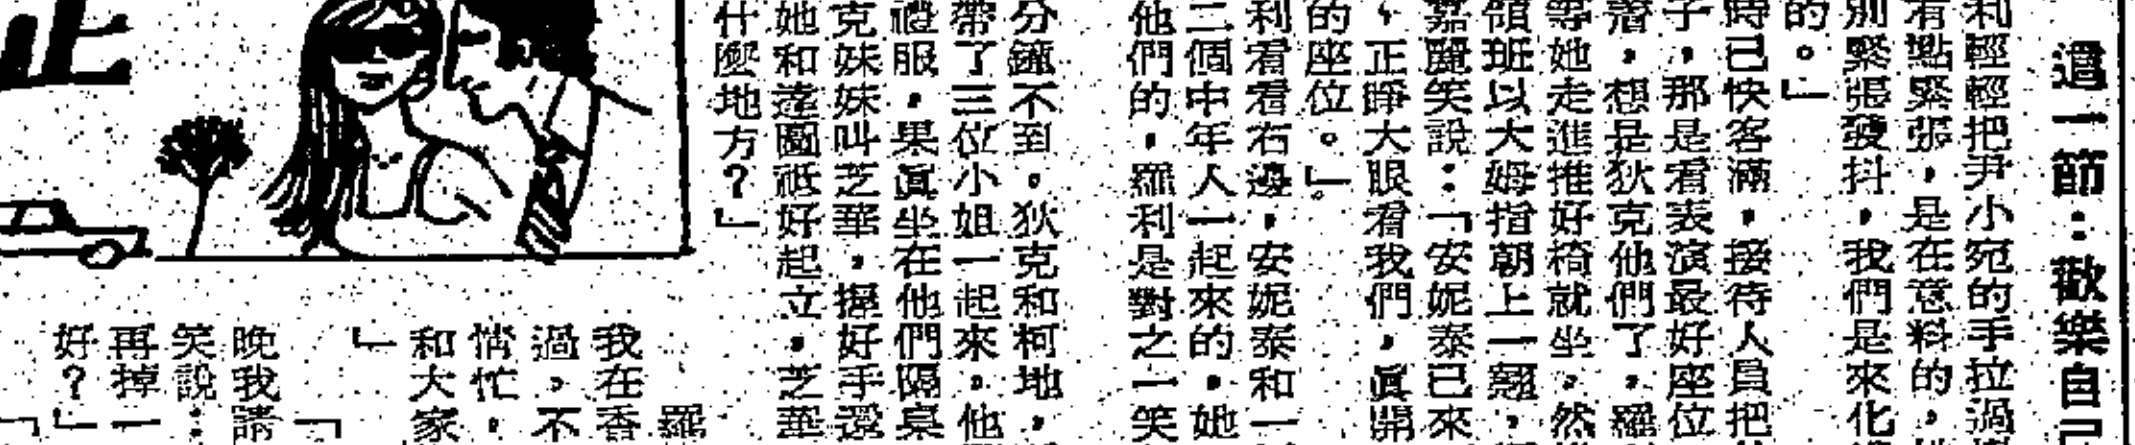 這一節：歡樂自己
利輕輕把尹小宛的手拉過
有點緊張，是在意料的，
別緊張發抖，我們是來化
的。」
時已快客滿，接待人員把
子，那是看表演最好座位
着，想是狄克他們了，羅
等她走進推好椅就坐，然
領班以大姆指朝上一翹，
嘉麗笑說：「安妮泰已來
，正睜大眼看我們，眞開
的座位。」
利看看右邊，安妮泰和一
二個中年人一起來的，她
他們的，羅利是對之一笑
分鐘不到。狄克和柯地，
帶了三位小姐一起來，他
禮服，果眞坐在他們隔桌
克妹妹叫芝華，握好手還
她和達園祗好起立，芝華
什麼地方？」
止
羅
我在香
過，不
情忙，
和大家
」
「
晚我請
笑說：
再掉一
好？」「